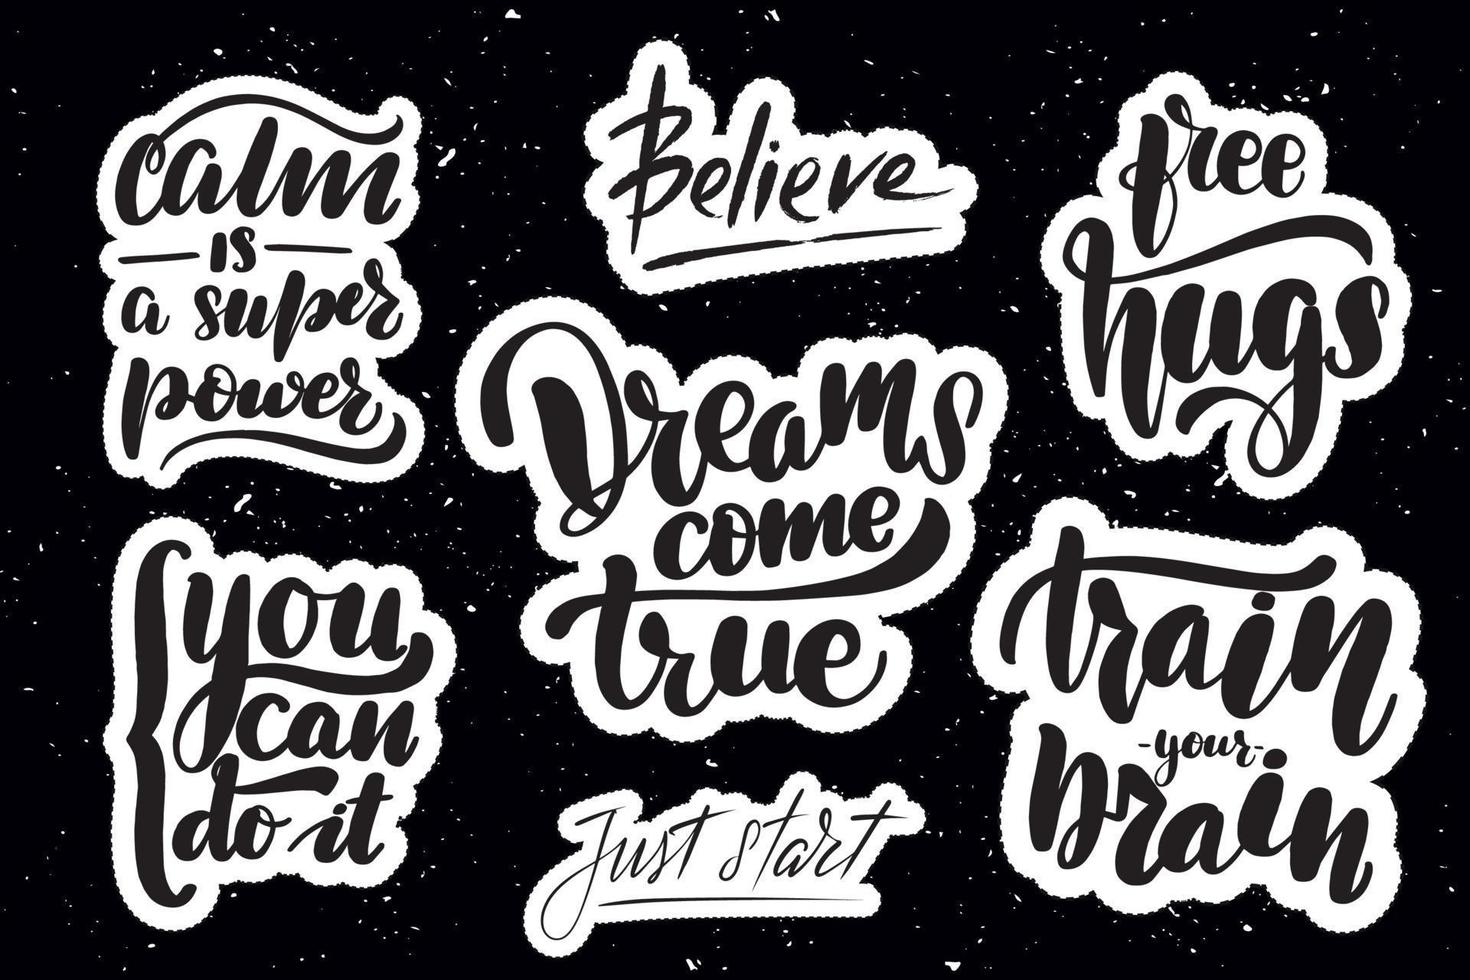 calm
is
a super
power
Believe
free
hugs
Dreams
come
true
you
can
do it
Just start
train
-your-
brain